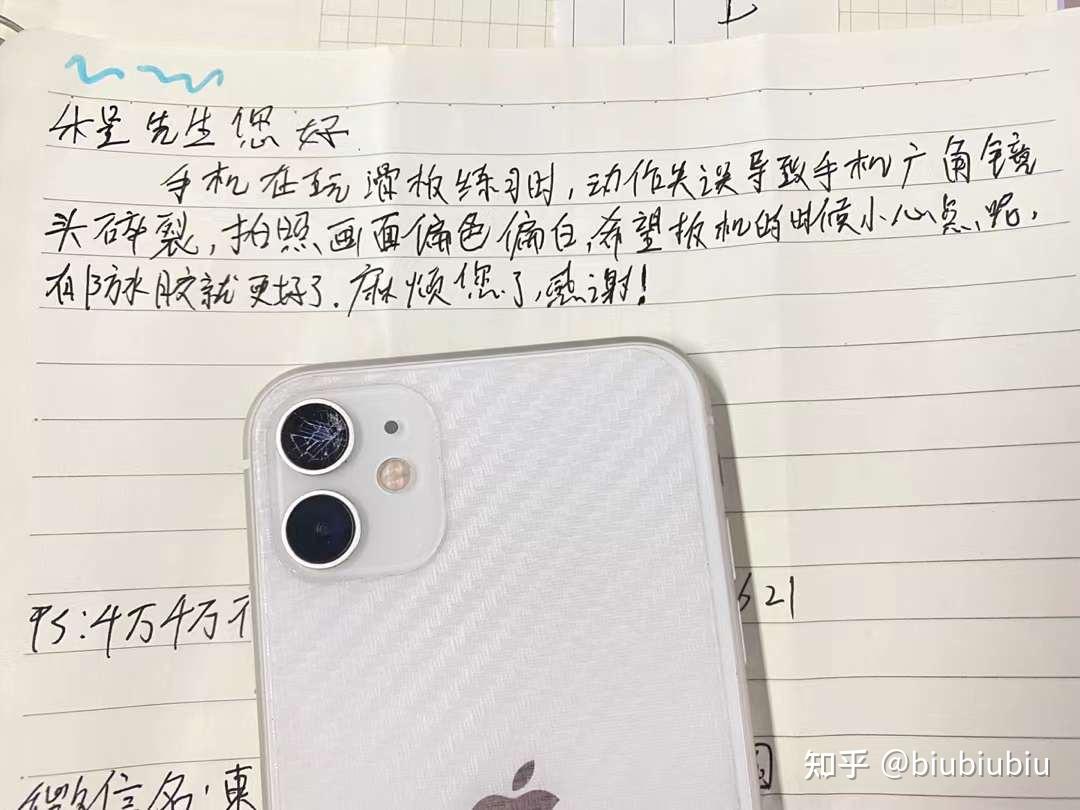 先生您好
手机在玩滑板练习时,动作失误导致手机广角镜
头碎裂,拍照画面偏色偏白,希望拆机的时候小心点呢,
有防水胶就更好了.麻烦您了,感谢!
PS:4万4万不
621
微信名:東
知乎 @biubiubiu